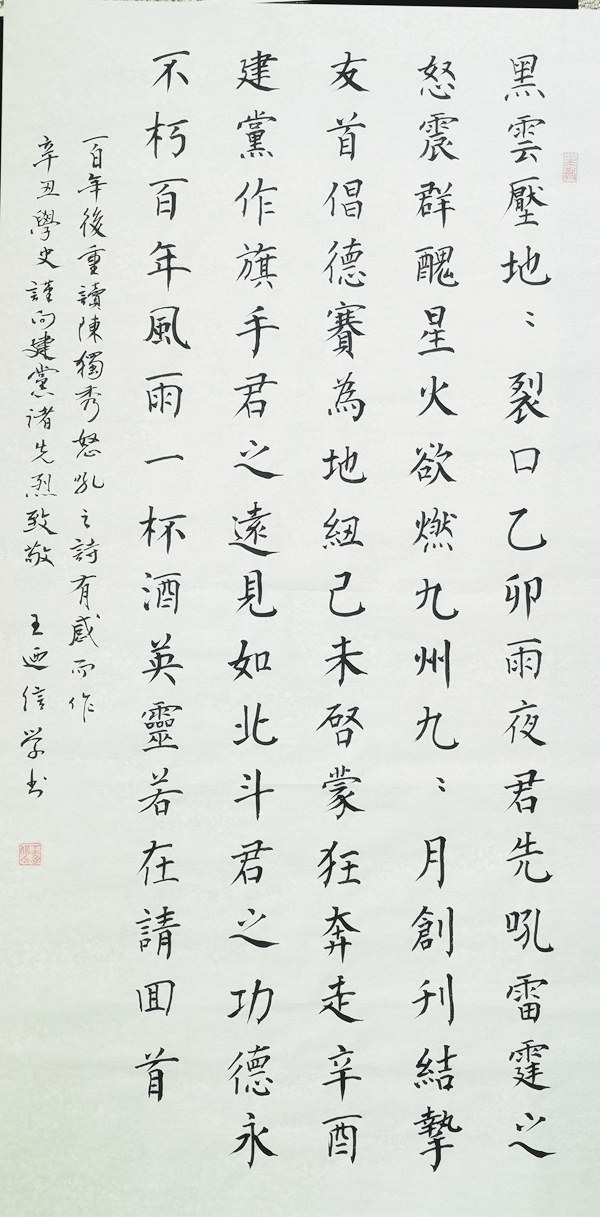 黑雲壓地：裂口乙卯雨夜君先吼雷霆之
怒震群醜星火欲燃九州九：月創刊結摯
友首倡德賽為地紐己未啓蒙狂奔走辛酉
建黨作旗手君之遠見如北斗君之功德永
不朽百年風雨一杯酒英靈若在請回首
一百年後重讀陳獨秀怒吼之詩有感而作
辛丑學史謹向建黨諸先烈致敬 王迺信学书